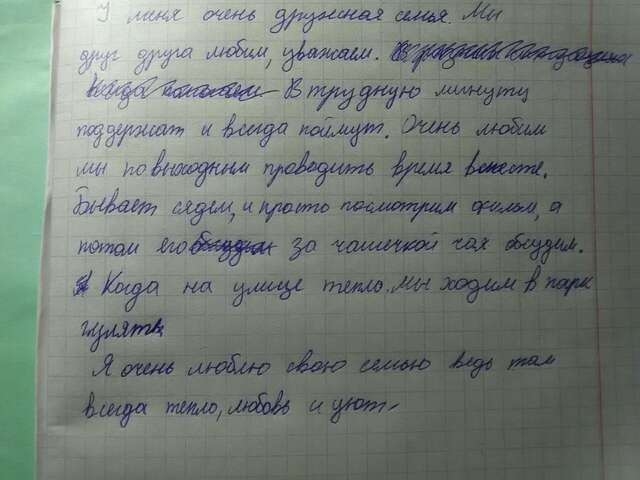 У меня очень дружная семья. Мы
друг друга любим, уважаем.
В трудную минуту
поддержат и всегда поймут. Очень любим
мы по выходным проводить время вместе.
Бывает сядем, и просто посмотрим фильм, а
потом его за чашечкой чая обсудим.
Когда на улице тепло. Мы ходим в парк
гулять.
Я очень люблю свою семью ведь там
всегда тепло, любовь и уют.